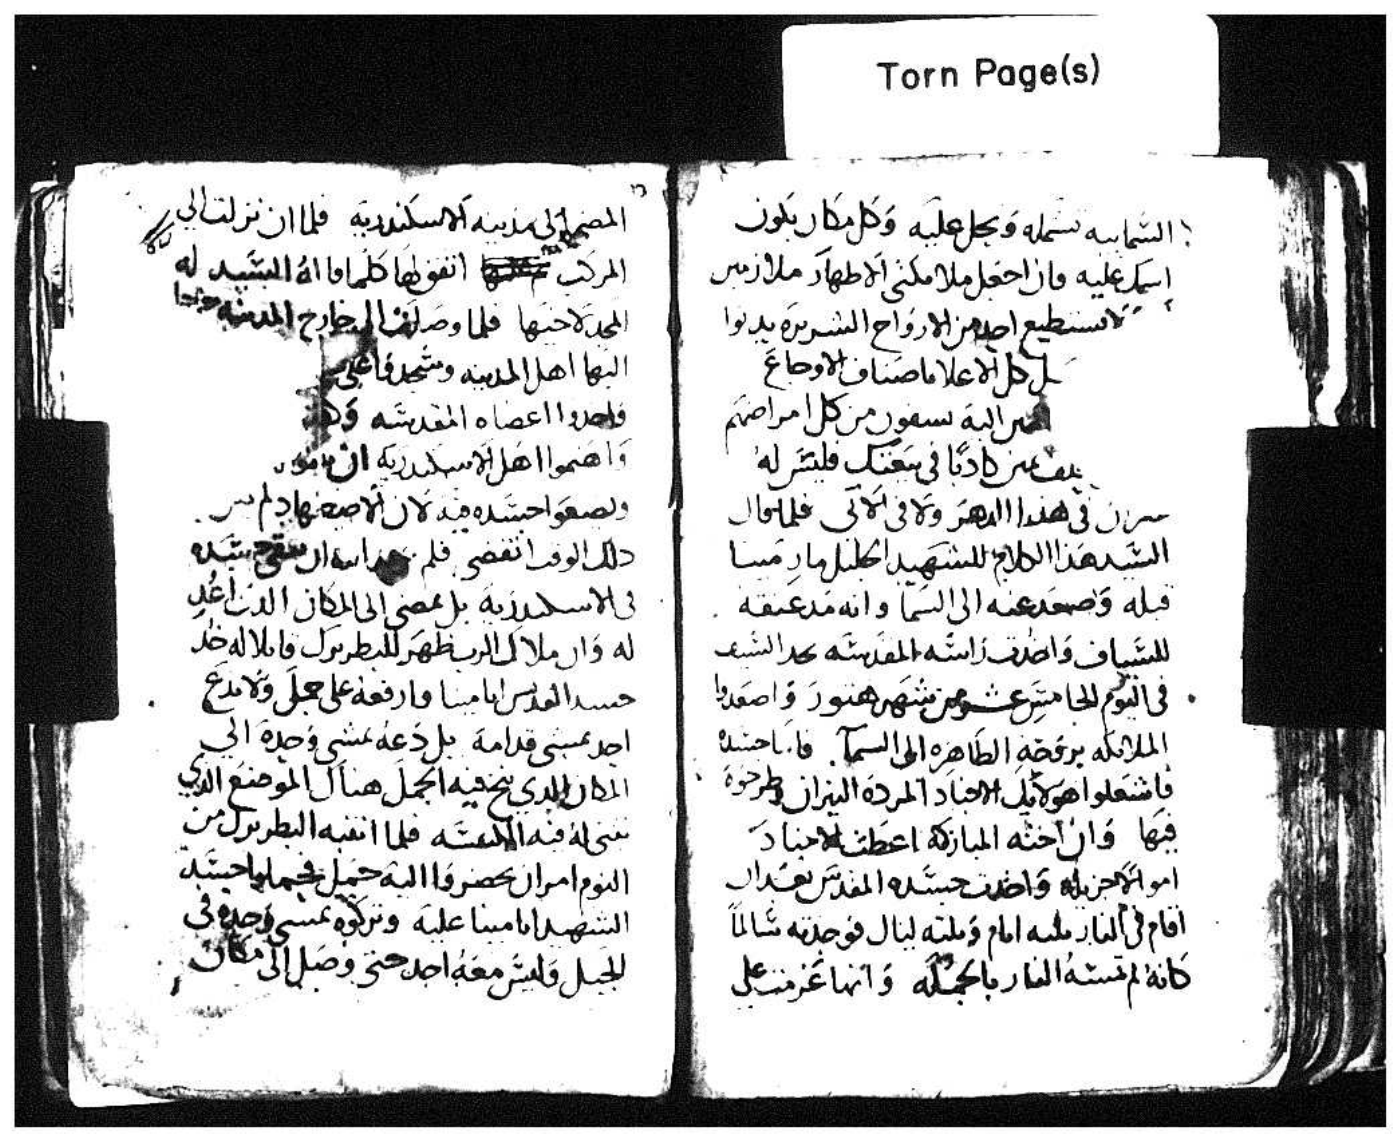 Torn Page(s)
السماييه تشمله وتحل عليه وكل مكان يكون
اسمك عليه فان احعل ملايكتي الاطهار ملازمين
لا تستطيع احد من الارواح الشريره يدنوا
كل الاعلا واصناف الاوجاع
اليه يسعون من كل امراضهم
كادبًا في بيعتك فليس له
في هذا الدهر ولا في الاتي فلما قال
السيد هذا الكلام للشهيد الجليل ماري مينا
قبله وصعد عنه الى السما وانه مد عنقه
للسياف واخدت راسه المقدسه بحد السيف
في اليوم الخامس عشر من شهر هتور واصعدوا
الملايكه بروحه الطاهره الى السما جسده
فاشعلوا هولايك الاجناد المرده النيران وطرحوه
فيها وان اخته المباركه اعطت الاجناد
اموالا جزيله واخدت جسده المقدس بعد ان
اقام في النار تلته ايام وتلته ليال فوجدته سالمًا
كانه لم تمسه النار بالجمله وانها عزمت على
المضي الى مدينه الاسكندريه فلما ان نزلت الى
المركب اتفق لها كلما قاله السيد له
المجد لاختها فلما وصلت الى خارج المدينه خرجوا
اليها اهل المدينه وسجدوا على
واخدوا اعضاه المقدسه
واهتموا اهل الاسكندريه ان
ويضعوا جسده فيه لان الاضطهاد لم
دلك الوقت انقضى فلم جسده
في الاسكندريه بل يمضى الى المكان الدي اعد
له وان ملاك الرب ظهر للبطريرك قايلا له خد
جسد القديس ابا مينا وارفعه على جمل ولا تدع
احد يمشي قدامه بل دعه يمشي وحده الى
المكان الدي ينخ فيه الجمل هناك الموضع الدي
تبنى له فيه الكنيسه فلما انتبه البطريرك من
النوم امر ان يحضروا اليه جميل جسد
الشهيد ابا مينا عليه وتركوه يمشي وحده في
الجبل وليس معه احد حتى وصل الى مكان